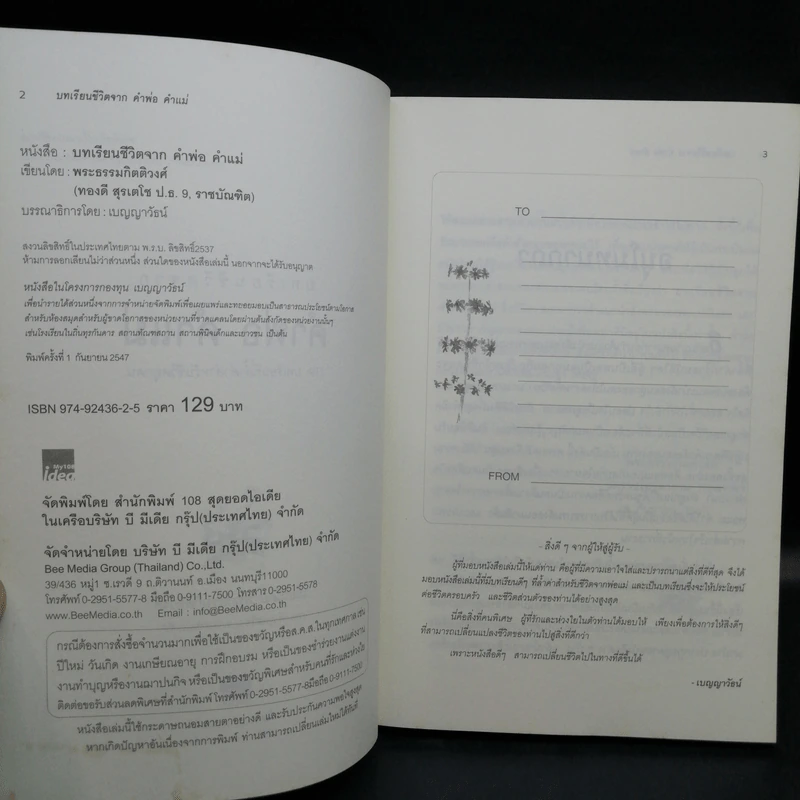 2 บทเรียนชีวิตจาก คำพ่อ คำแม่
หนังสือ : บทเรียนชีวิตจาก คำพ่อ คำแม่
เขียนโดย : พระธรรมกิตติวงศ์
(ทองดี สุรเตโช ป.ธ. 9, ราชบัณฑิต)
บรรณาธิการโดย : เบญญาวัธน์
สงวนลิขสิทธิ์ในประเทศไทยตาม พ.ร.บ. ลิขสิทธิ์2537
ห้ามการลอกเลียนไม่ว่าส่วนหนึ่ง ส่วนใดของหนังสือเล่มนี้ นอกจากจะได้รับอนุญาต
หนังสือในโครงการกองทุน เบญญาวัธน์
เพื่อนำรายได้ส่วนหนึ่งจากการจำหน่ายจัดพิมพ์เพื่อเผยแพร่และทยอยมอบเป็นสาธารณประโยชน์ตามโอกาส
สำหรับห้องสมุดสำหรับผู้ขาดโอกาสของหน่วยงานที่ขาดแคลนโดยผ่านต้นสังกัดของหน่วยงานนั้นๆ
เช่นโรงเรียนในถิ่นทุรกันดาร สถานทัณฑสถาน สถานพินิจเด็กและเยาวชน เป็นต้น
พิมพ์ครั้งที่ 1 กันยายน 2547
ISBN 974-92436-2-5 ราคา 129 บาท
My108
idea
จัดพิมพ์โดย สำนักพิมพ์ 108 สุดยอดไอเดีย
ในเครือบริษัท บี มีเดีย กรุ๊ป(ประเทศไทย) จำกัด
จัดจำหน่ายโดย บริษัท บี มีเดีย กรุ๊ป(ประเทศไทย) จำกัด
Bee Media Group (Thailand) Co.,Ltd.
39/436 หมู่1 ซ.เรวดี 9 ถ.ติวานนท์ อ.เมือง นนทบุรี11000
โทรศัพท์ 0-2951-5577-8 มือถือ 0-9111-7500 โทรสาร 0-2951-5578
www.BeeMedia.co.th Email : info@BeeMedia.co.th
กรณีต้องการสั่งซื้อจำนวนมากเพื่อใช้เป็นของขวัญหรือส.ค.ส.ในทุกเทศกาล เช่น
ปีใหม่ วันเกิด งานเกษียณอายุ การฝึกอบรม หรือเป็นของชำร่วยงานแต่งงาน
งานทำบุญหรืองานฌาปนกิจ หรือเป็นของขวัญพิเศษสำหรับคนที่รักและห่วงใย
ติดต่อขอรับส่วนลดพิเศษที่สำนักพิมพ์ โทรศัพท์ 0-2951-5577-8มือถือ 0-9111-7500
หนังสือเล่มนี้ใช้กระดาษถนอมสายตาอย่างดี และรับประกันความพอใจสูงสุด
หากเกิดปัญหาอันเนื่องจากการพิมพ์ ท่านสามารถเปลี่ยนเล่มใหม่ได้ทันที
3
TO
FROM
- สิ่งดี ๆ จากผู้ให้สู่ผู้รับ -
ผู้ที่มอบหนังสือเล่มนี้ให้แด่ท่าน คือผู้ที่มีความเอาใจใส่และปรารถนาแต่สิ่งที่ดีที่สุด จึงได้
มอบหนังสือเล่มนี้ที่มีบทเรียนดีๆ ที่ล้ำค่าสำหรับชีวิตจากพ่อแม่ และเป็นบทเรียนซึ่งจะให้ประโยชน์
ต่อชีวิตครอบครัว และชีวิตส่วนตัวของท่านได้อย่างสูงสุด
นี่คือสิ่งที่คนพิเศษ ผู้ที่รักและห่วงใยในตัวท่านได้มอบให้ เพียงเพื่อต้องการให้สิ่งดีๆ
ที่สามารถเปลี่ยนแปลงชีวิตของท่านไปสู่สิ่งที่ดีกว่า
เพราะหนังสือดีๆ สามารถเปลี่ยนชีวิตไปในทางที่ดีขึ้นได้
- เบญญาวัธน์